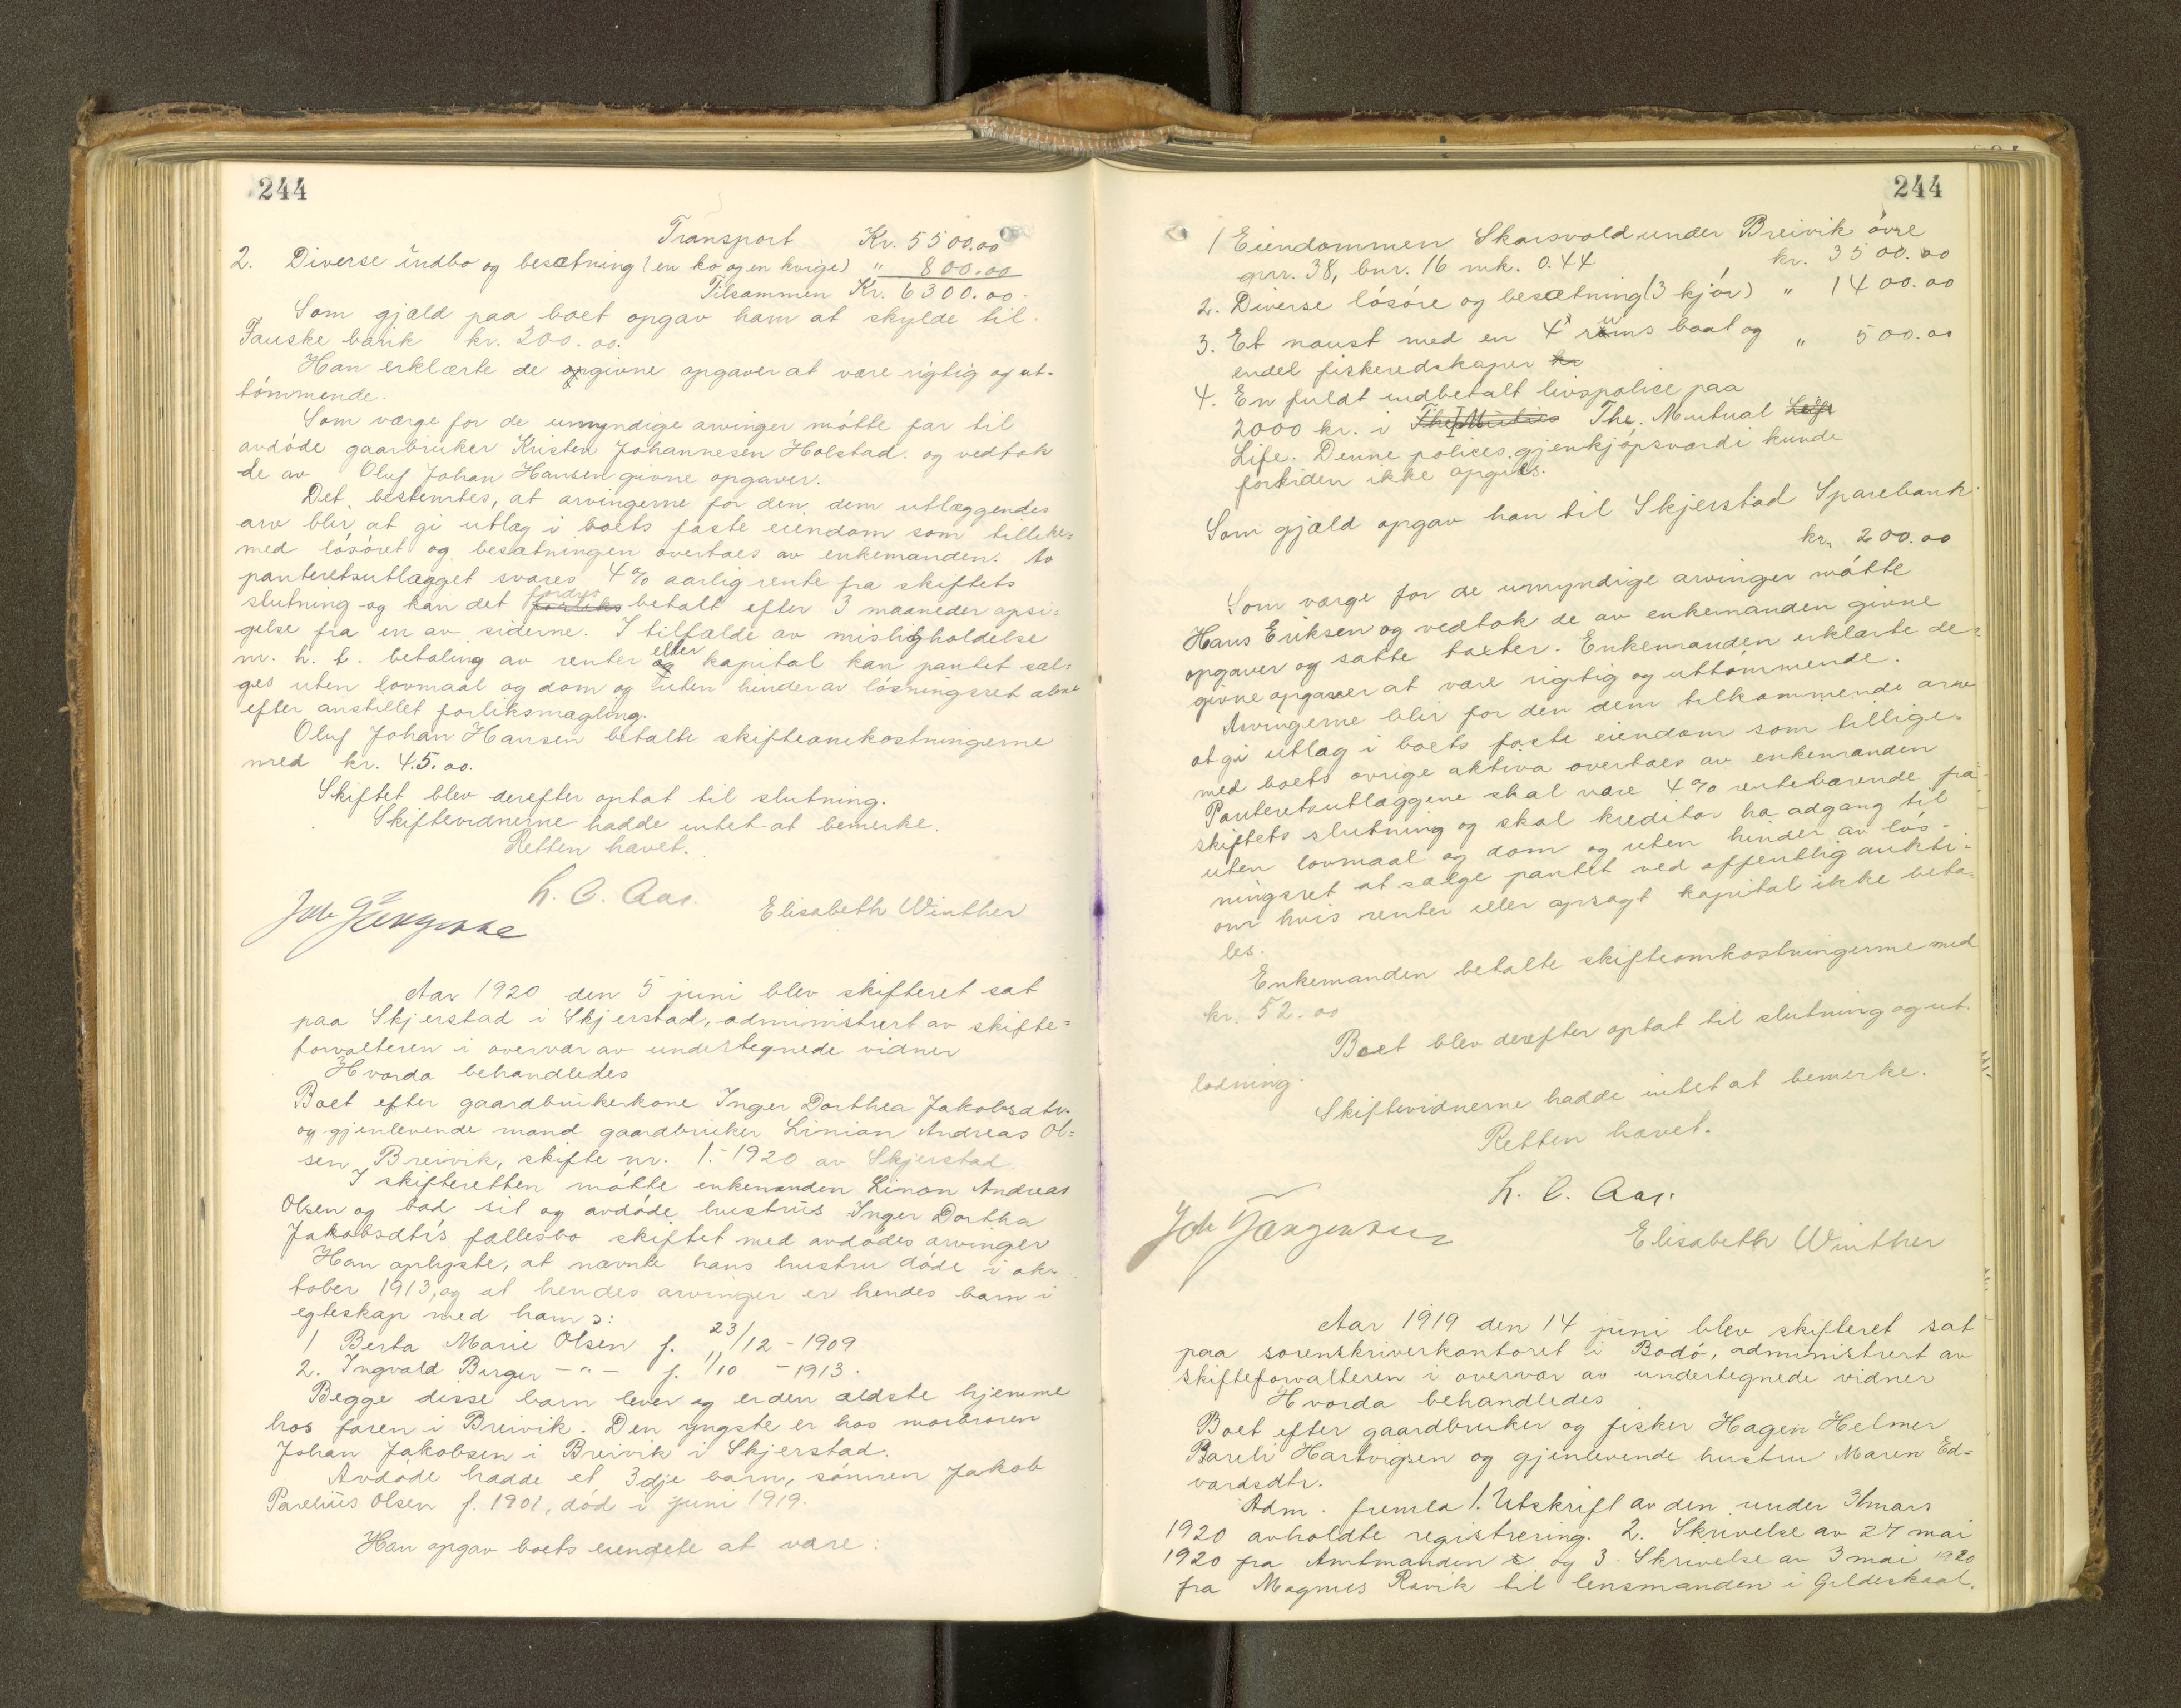 244
Transport Kr. 5500.00
2. Diverse indbo og besætning (en ko og en kvige) " 800.00
Tilsammen Kr. 6300.00.
Som gjæld paa boet opgav ham at skylde til
Fauske bank kr. 200.00.
Han erklærte de opgivne opgaver at være rigtig og ut-
tømmende.
Som værge for de umyndige arvinger møtte far til
avdøde gaarbruker Kristen Johannesen Holstad. og vedtok
de av Oluf Johan Hansen givne opgaver.
Det bestemtes, at arvingerne for den dem utlæggendes
arv blir at gi utlæg i boets faste eiendom som tillike=
med løsøret og besætningen overtaes av enkemanden. Av
panteretsutlægget svares 4% aarlig rente fra skiftets
slutning og kan det fordres betalt efter 3 maaneder opsi=
gelse fra en av siderne. I tilfælde av misligholdelse
m. h. t. betaling av renter eller kapital kan pantet sæl=
ges uten lovmaal og dom og uten hinder av løsningsret alene
efter anstillet forliksmægling.
Oluf Johan Hansen betalte skifteomkostningerne
med kr. 45.00.
Skiftet blev derefter optat til slutning.
Skiftevidnerne hadde intet at bemerke.
Retten hævet.
h. C. Aas.
Elisabeth Winther
Aar 1920 den 5 juni blev skifteret sat
paa Skjerstad i Skjerstad, administrert av skifte=
forvalteren i overvær av undertegnede vidner
Hvorda behandledes
Boet efter gaardbrukerkone Inger Dorthea Jakobsdtr.
og gjenlevende mand gaardbruker Linian Andreas Ol=
sen, Breivik, skifte nr. 1.-1920 av Skjerstad.
I skifteretten møtte enkemanden Limon Andreas
Olsen og bad sit og avdøde hustrus Inger Dortha
Jakobsdtr's fællesbo skiftet med avdødes arvinger
Han oplyste, at nævnte hans hustru døde i ok-
tober 1913, og at hendes arvinger er hendes barn i
egteskap med ham ɔ:
1 Berta Marie Olsen f. 23/12 - 1909
2. Ingvald Birger - " - f. 1/10 - 1913.
Begge disse barn lever og er den ældste hjemme
hos faren i Breivik. Den yngste er hos morbroren
Johan Jakobsen i Breivik i Skjerstad.
Avdøde hadde et 3dje barn, sønnen Jakob
Parelius Olsen f. 1901, død i juni 1919.
Han opgav boets eiendele at være:
244
1 Eiendommen Skarsvold under Breivik øvre
gnr. 38, bnr. 16 mk. 0.44 kr. 3500.00
2. Diverse løsøre og besætning (3 kjør) " 1400.00
3. Et naust med en 4 rums baat og " 500.00
endel fiskeredskaper kr
4. En fuldt indbetalt livspolise paa
2000 kr. i The Mutual
Life. Denne polices gjenkjøpsværdi kunde
fortiden ikke opgives.
Som gjæld opgav han til Skjerstad Sparebank
kr. 200.00
Som værge for de umyndige arvinger møtte
Hans Eriksen og vedtok de av enkemanden givne
opgaver og satte takster. Enkemanden erklærte de
givne opgaver at være rigtig og uttømmende.
Arvingerne blir for den dem tilkommende arv
at gi utlæg i boets faste eiendom som tillige-
med boets øvrige aktiva overtaes av enkemanden
Panteretsutlæggene skal være 4% rentebærende fra
skiftets slutning og skal kreditor ha adgang til
uten lovmaal og dom og uten hinder av løs-
ningsret at sælge pantet ved offentlig aukti-
on hvis renter eller opsagt kapital ikke beta-
les.
Enkemanden betalte skifteomkostningerne med
kr. 52.00
Boet blev derefter optat til slutning og ut-
lodning.
Skiftevidnerne hadde intet at bemerke.
Retten hævet.
h. C. Aas.
Elisabeth Winther
Aar 1919 den 14 juni blev skifteret sat
paa sorenskriverkontoret i Bodø, administrert av
skifteforvalteren i overvær av undertegnede vidner
Hvorda behandledes
Boet efter gaardbruker og fisker Hagen Helmer
Pareli Hartvigsen og gjenlevende hustru Maren Ed-
vardsdtr.
Adm. fremla 1. Utskrift av den under 31 mars
1920 avholdte registrering. 2. Skrivelse av 27 mai
1920 fra Amtmanden og 3. Skrivelse av 3 mai 1920
fra Magnus Røvik til lensmanden i Gildeskaal.